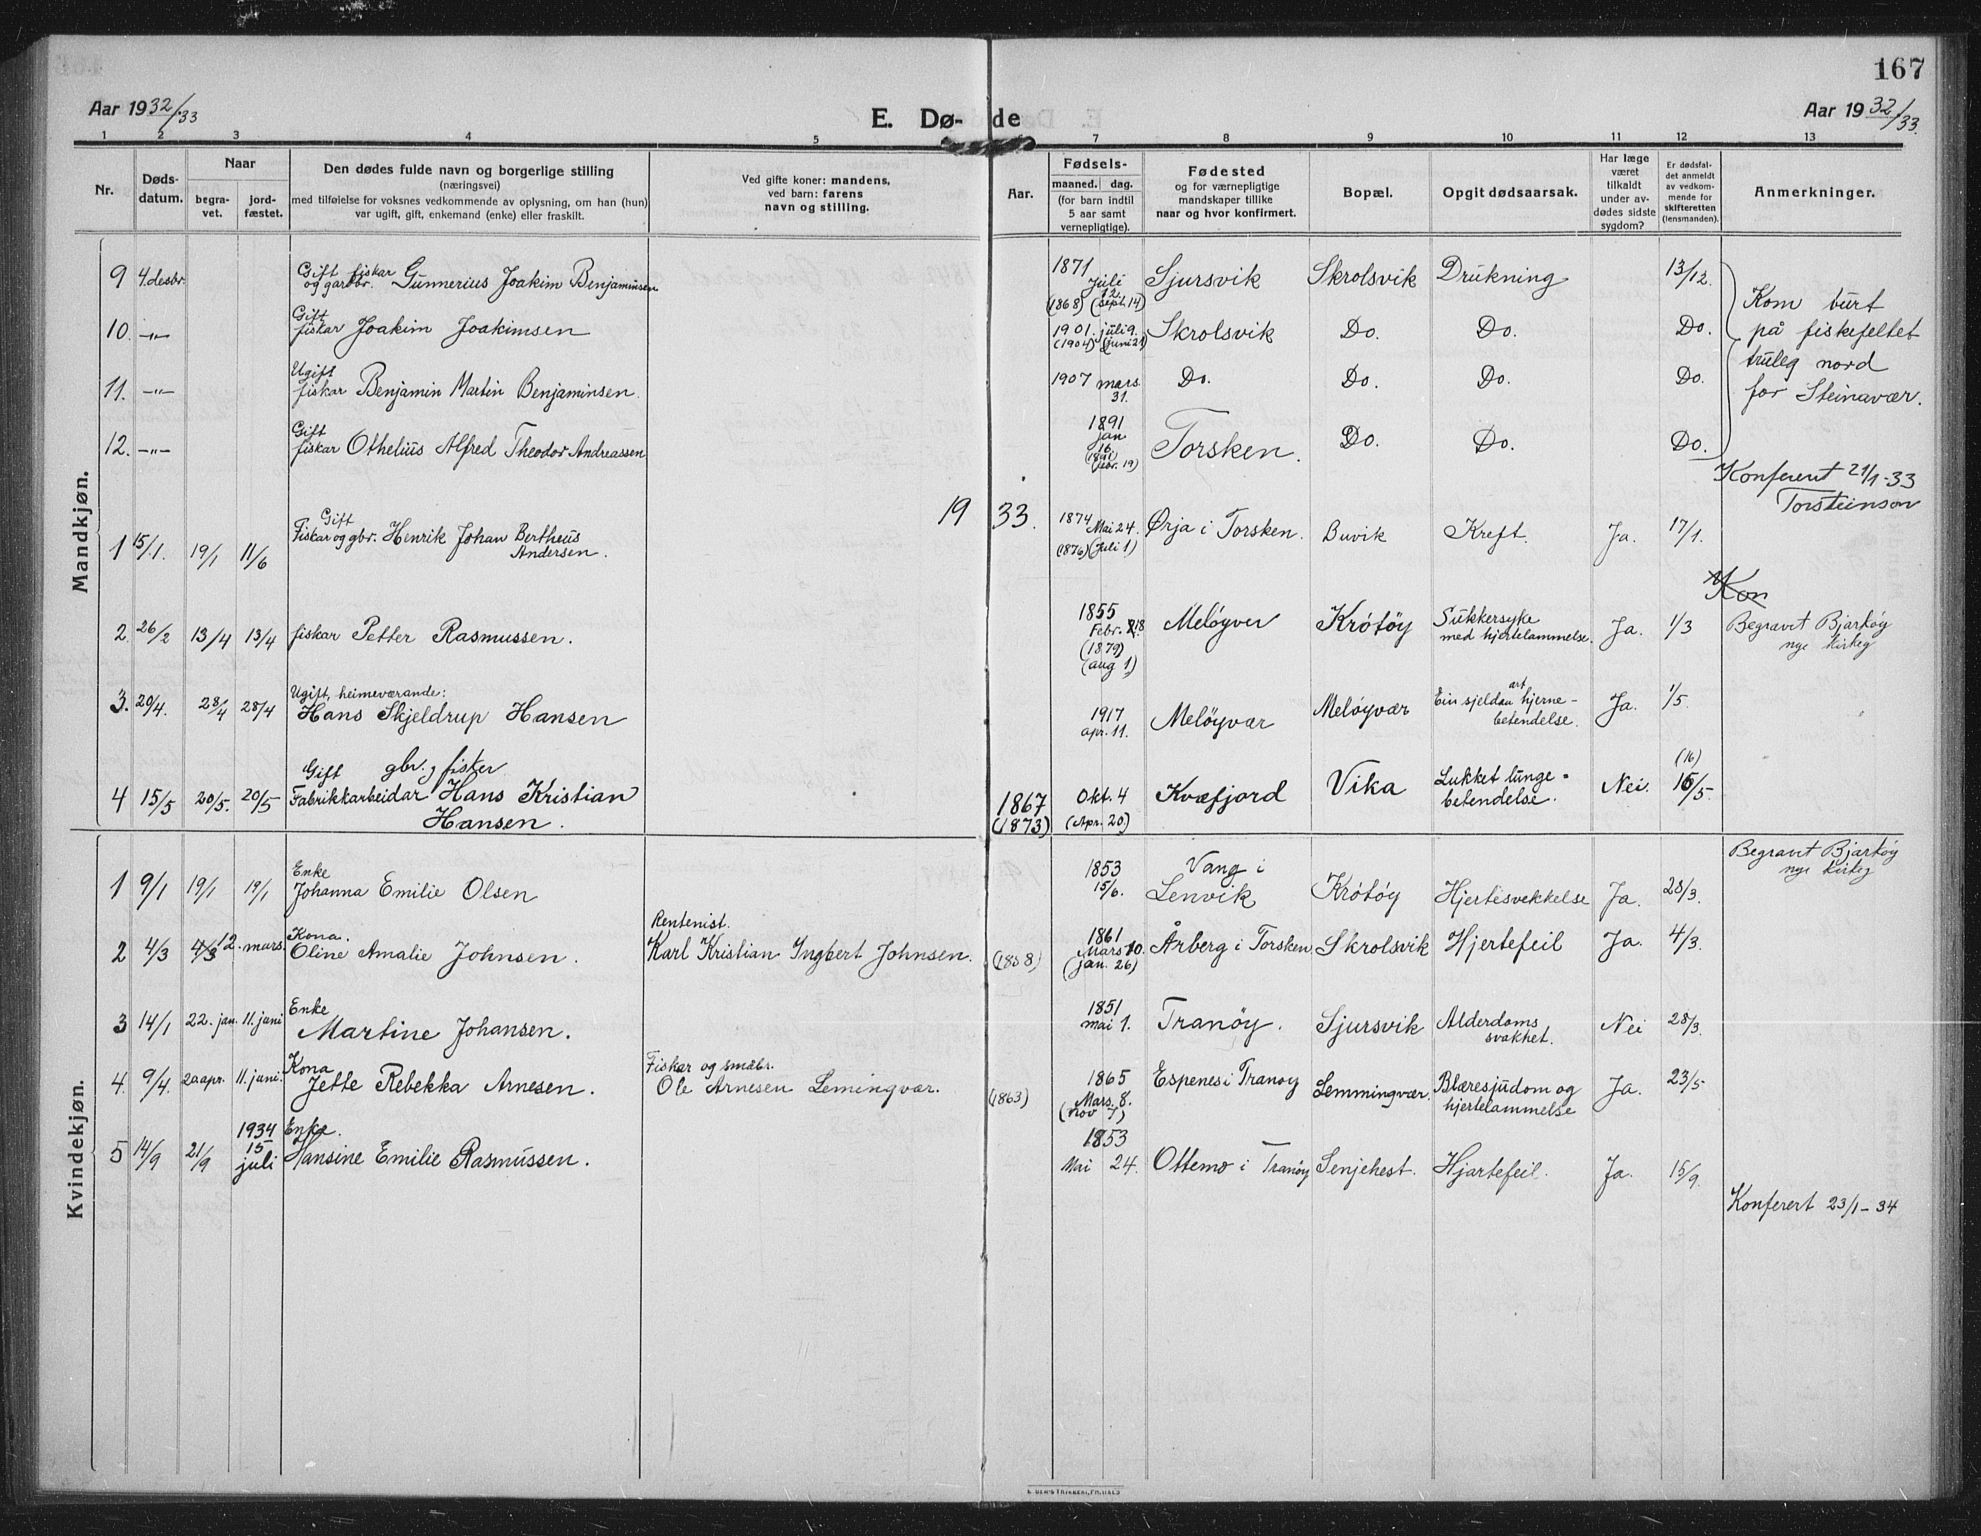 167
Aar 1932/33
E. Dø- de
Aar 1932/33.
1 2 3 4 5 7 8 9 10 11 12 13
Nr.
Døds-
datum.
Naar
begra-
vet.
jord-
fæstet.
Den dødes fulde navn og borgerlige stilling
(næringsvei)
med tilføielse for voksnes vedkommende av oplysning, om han (hun)
var ugift, gift, enkemand (enke) eller fraskilt.
Ved gifte koner: mandens,
ved barn: farens
navn og stilling.
Aar.
Fødsels-
maaned. dag.
(for barn indtil
5 aar samt
vernepligtige).
Fødested
og for værnepligtige
mandskaper tillike
naar og hvor konfirmert.
Bopæl.
Opgit dødsaarsak.
Har læge
været
tilkaldt
under av-
dødes sidste
sygdom?
Er dødsfal-
det anmeldt
av vedkom-
mende for
skifteretten
(lensmanden).
Anmerkninger.
Mandkjøn.
9 4. desbr. Gift fiskar og gardbr. Gunnerius Joakim Benjaminsen 1871 Juli 12 (1868) (sept. 14) Sjursvik Skrolsvik Drukning 13/12.
10. -"- Gift fiskar Joakim Joakimsen 1901. juli 9. (1904) (juni 21) Skrolsvik Do. Do. Do.
11. -"- Ugift fiskar Benjamin Martin Benjaminsen. 1907 mars 31. Do. Do. Do. Do.
12. -"- Gift fiskar Othelius Alfred Theodor Andreassen 1891 jan 16. (1891) (febr. 19) Torsken. Do. Do. Do.
Kom burt
på fiskefeltet
truleg nord
for Steinavær.
Konferert 21/1-33
Torsteinson
19 33.
1 15/1. 19/1 11/6 Gift Fiskar og gbr. Henrik Johan Bertheus Andersen. 1874 Mai 24. (1876) (Juli 1) Ørja i Torsken. Buvik Kreft. Ja. 17/1.
Kon
2. 26/2 13/4 13/4 fiskar Petter Rasmussen. 1855 Febr. 18 (1879) (aug 1) Meløyver Krötöy Sukkersyke med hjertelammelse. Ja. 1/3 Begravet Bjarkøy nye kirkeg
3. 20/4. 28/4 28/4 Ugift, heimeværande: Hans Skjeldrup Hansen 1917 apr. 11. Meløyvær Meløyvær Ein sjeldan art hjerne-betendelse. Ja. 1/5.
4 15/5 20/5. 20/5 Gift gbr. , fisker Fabrikkarbeidar Hans Kristian Hansen. 1867 (1873) Okt. 4 (Apr. 20.) Kvæfjord Vika Lukket lunge-betendelse. Nei. (16) 16/5.
Kvindekjøn.
1 9/1 19/1 19/1 Enke Johanna Emilie Olsen 1853 15/6. Vang i Lenvik Krötöy Hjertesvekkelse Ja. 28/3. Begravet Bjarköy nye kirkeg
2 4/3 4/3 12. mars. Kona. Oline Amalie Johnsen. Rentenist. Karl Kristian Ingbert Johnsen. (1858) 1861 Mars 10. (jan. 26) Årberg i Torsken Skrolsvik Hjertefeil Ja. 4/3.
3 14/1 22. jan. 11. juni Enke Martine Johansen. 1851 mai 1. Tranöy. Sjursvik Alderdoms svakhet. Nei 28/3.
4. 9/4. 20 apr. 11. juni. Kona Jette Rebekka Arnesen. Fiskar og småbr. Ole Arnesen Lemingvær. (1863) 1865 Mars. 8. (nov 7) Espenes i Tranøy Lemmingvær. Blæresjudom og hjertelammelse Ja. 23/5
5 14/9 21/9 1934 15 juli Enke. Hansine Emilie Rasmussen. 1853 Mai 24. Ottemo i Tranöy Senjehest. Hjartefeil. Ja. 15/9.
Konferert 23/1-34